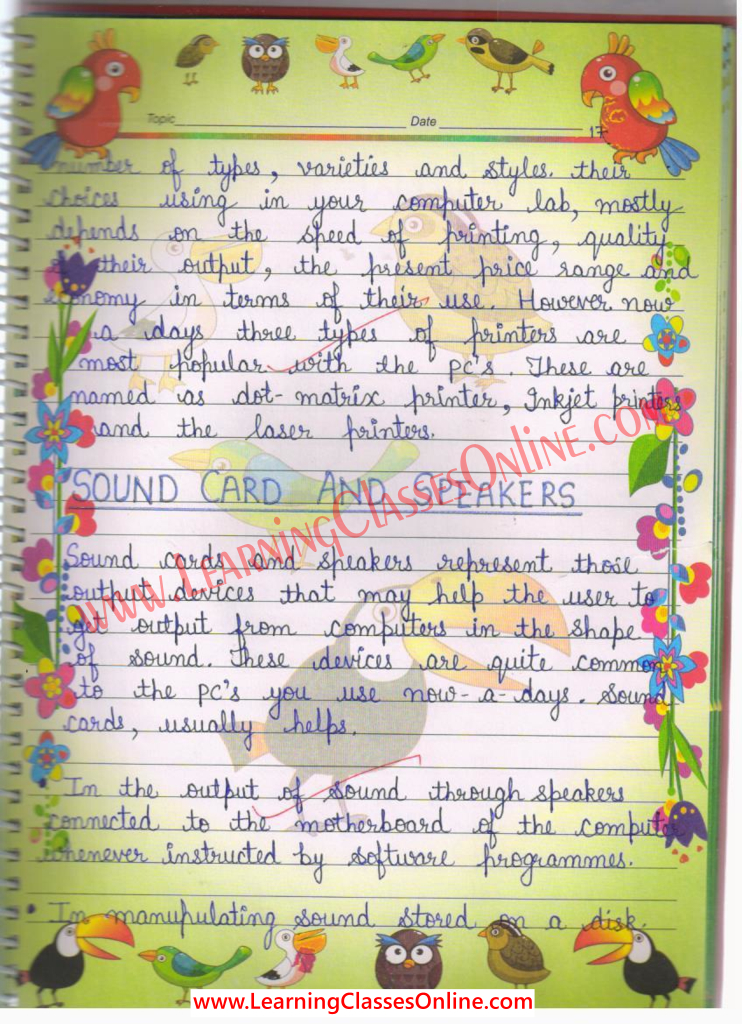 Topic
Date
17
number of types, varieties and styles. their
choices using in your computer lab, mostly
depends on the speed of printing, quality
of their output, the present price range and
economy in terms of their use. However now
a days three types of printers are
most popular with the PC's. These are
named as dot-matrix printer, Inkjet printers
and the laser printers.
SOUND CARD AND SPEAKERS
Sound cards and speakers represent those
output devices that may help the user to
get output from computers in the shape
of sound. These devices are quite common
to the PC's you use now-a-days. Sound
cards, usually helps.
In the output of sound through speakers
connected to the motherboard of the computer
whenever instructed by software programmes.
• In manupulating sound stored on a disk.
www.LearningClassesOnline.com
www.LearningClassesOnline.com